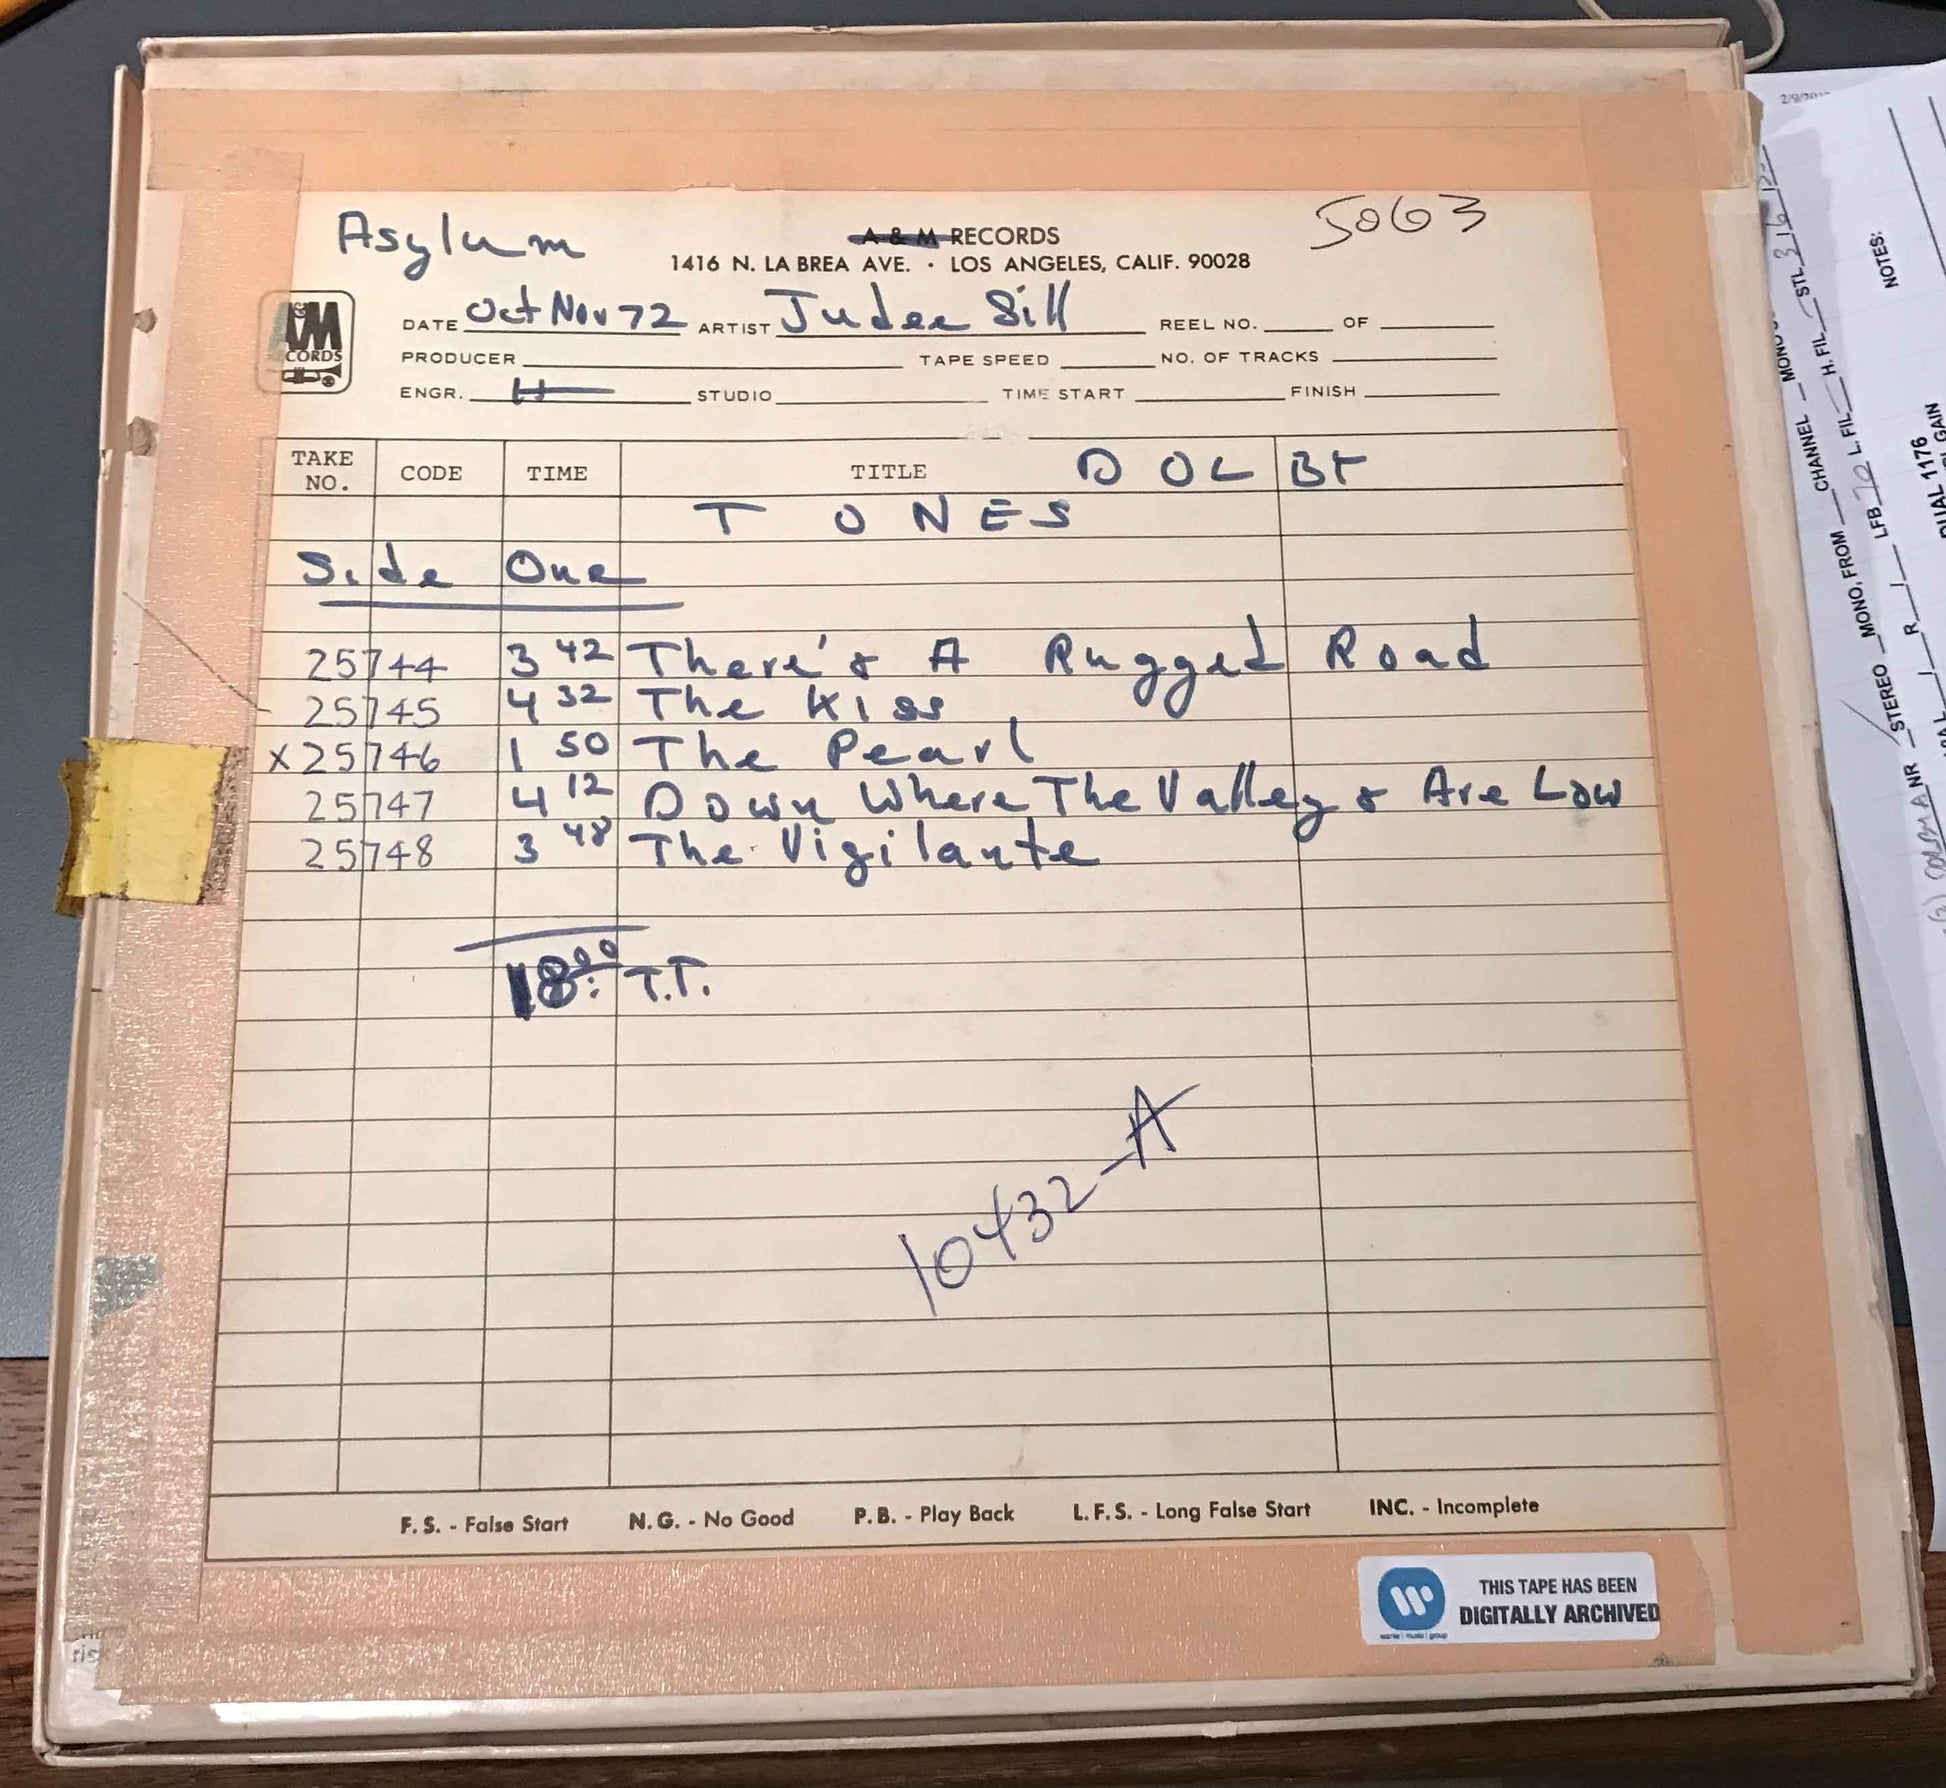 Asylum
5063
A & M RECORDS
1416 N. LA BREA AVE. · LOS ANGELES, CALIF. 90028
DATE Oct Nov 72 ARTIST Judee Sill REEL NO. OF
PRODUCER TAPE SPEED NO. OF TRACKS
ENGR. STUDIO TIME START FINISH
TAKE NO. CODE TIME TITLE DOLBY
TONES
Side One
25744 3 42 There's A Rugged Road
25745 4 32 The Kiss
x 25746 1 50 The Pearl
25747 4 12 Down Where The Valleys Are Low
25748 3 48 The Vigilante
18:00 T.T.
10432-A
F. S. - False Start N. G. - No Good P. B. - Play Back L. F. S. - Long False Start INC. - Incomplete
THIS TAPE HAS BEEN
DIGITALLY ARCHIVED
warner | music | group
NOTES:
STEREO MONO, FROM CHANNEL
LFB 70 L. FIL. H. FIL. STL 316
DUAL 1176
GAIN